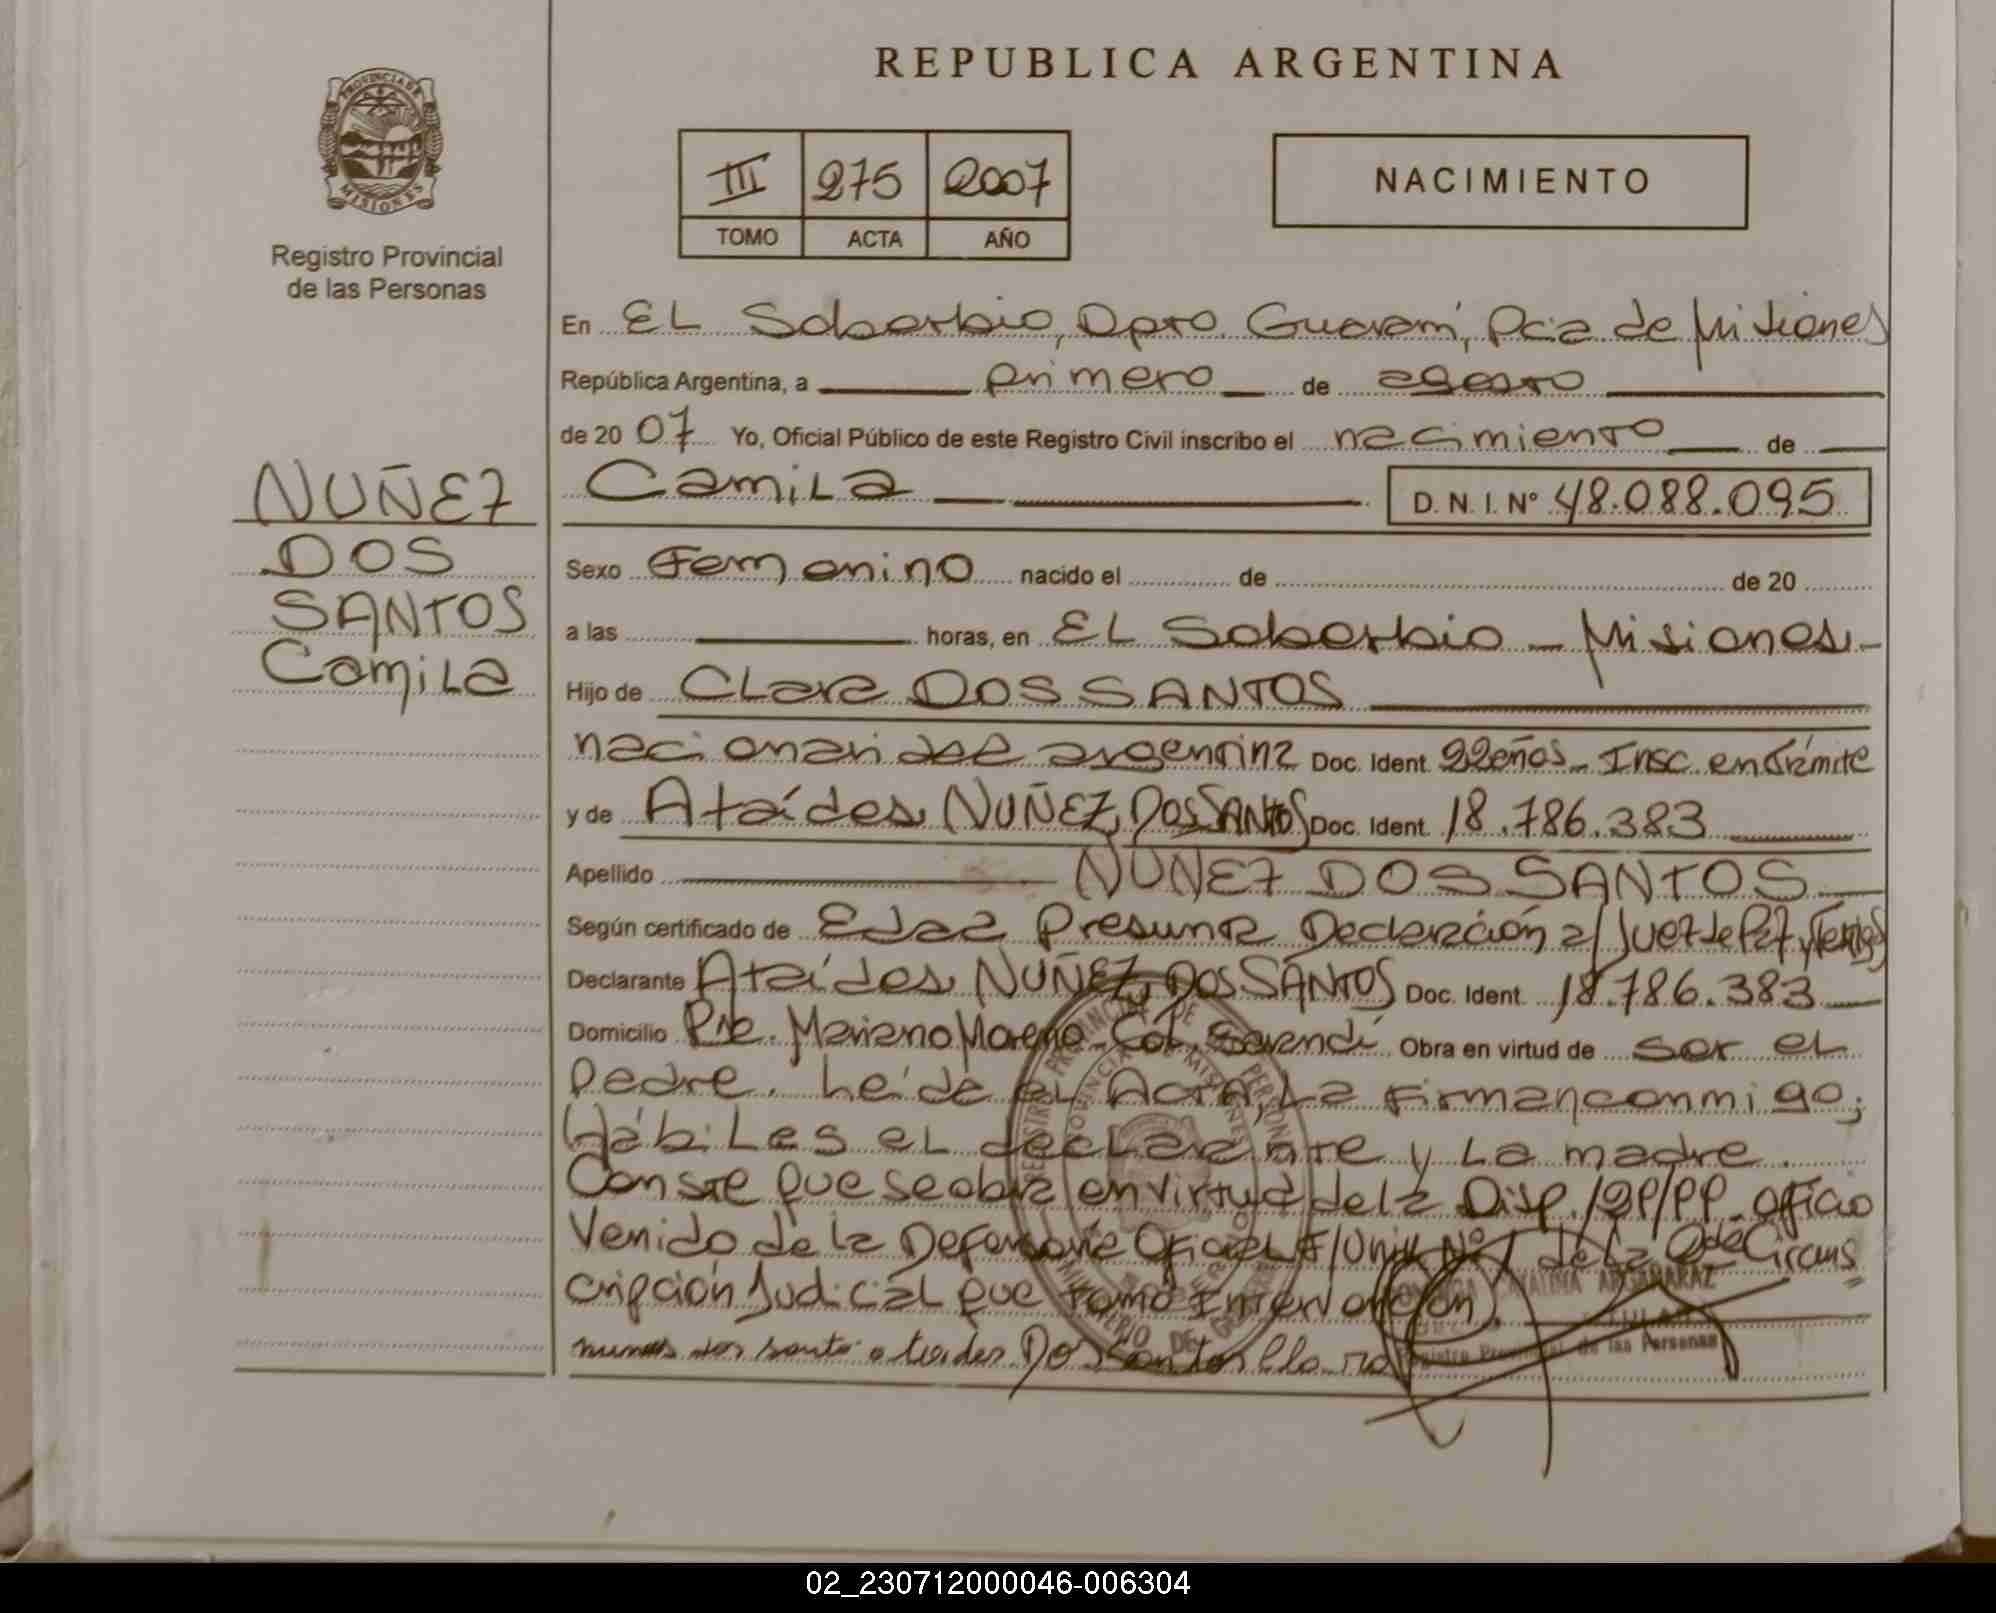 REPUBLICA ARGENTINA
PROVINCIA DE
MISIONES
Registro Provincial
de las Personas
III 275 2007
TOMO ACTA AÑO
NACIMIENTO
En EL Soberbio, Dpto Guaraní, Pcia de Misiones
República Argentina, a primero de agosto
de 20 07 Yo, Oficial Público de este Registro Civil inscribo el nacimiento de
Camila D.N.I. Nº 48.088.095
NUÑEZ
DOS
SANTOS
Camila
Sexo Femenino nacido el de de 20
a las horas, en EL Soberbio - Misiones.-
Hijo de Clara DOS SANTOS
nacionalidad argentina Doc. Ident. 22 años - Insc. en trámite
y de Ataídes NUÑEZ DOS SANTOS Doc. Ident. 18.786.383
Apellido NUÑEZ DOS SANTOS
Según certificado de Edad Presunta Declaración a/ Juez de Paz y Testigos
Declarante Ataídes NUÑEZ DOS SANTOS Doc. Ident. 18.786.383
Domicilio Pje. Mariano Moreno - Col. Sarandí Obra en virtud de ser el
padre. Leída el Acta, la firman conmigo;
Hábiles el declarante y la madre.
Conste que se obra en virtud de la Disp. /PP - Oficio
Venido de la Defensoría Oficial Nº 1 de la 2da Circuns
cripción Judicial que tomó Intervención.
dos santos Dos Santos Clara
de las Personas
02_230712000046-006304